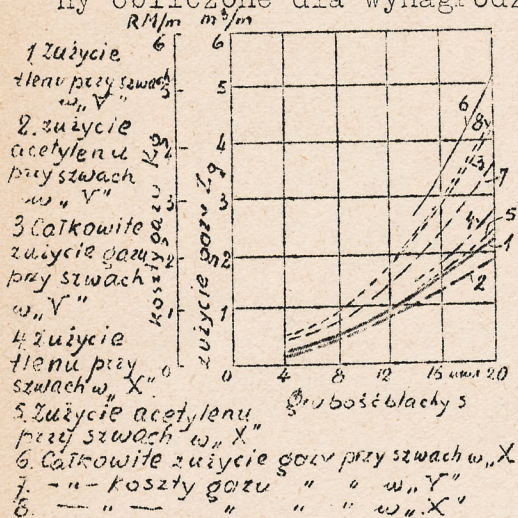 ny obliczone dla wynagrodz
RM/m m³/m
1 Zużycie
tlenu przy szwach
w „V”
2. zużycie
acetylenu
przy szwach
w „V”
3 Całkowite
zużycie gazu
przy szwach
w „V”
4 zużycie
tlenu przy
szwach w „X”
5. Zużycie acetylenu
przy szwach w „X”
6. Całkowite zużycie gazu przy szwach w „X
7. -"- koszty gazu " " w „V”
8. — " — " " w „X”
koszty gazu Kg
zużycie gazu Zg
6
5
4
3
2
1
0
6
5
4
3
2
1
0
6
8
3
7
4
5
1
2
0 4 8 12 16 mm 20
Grubość blachy s